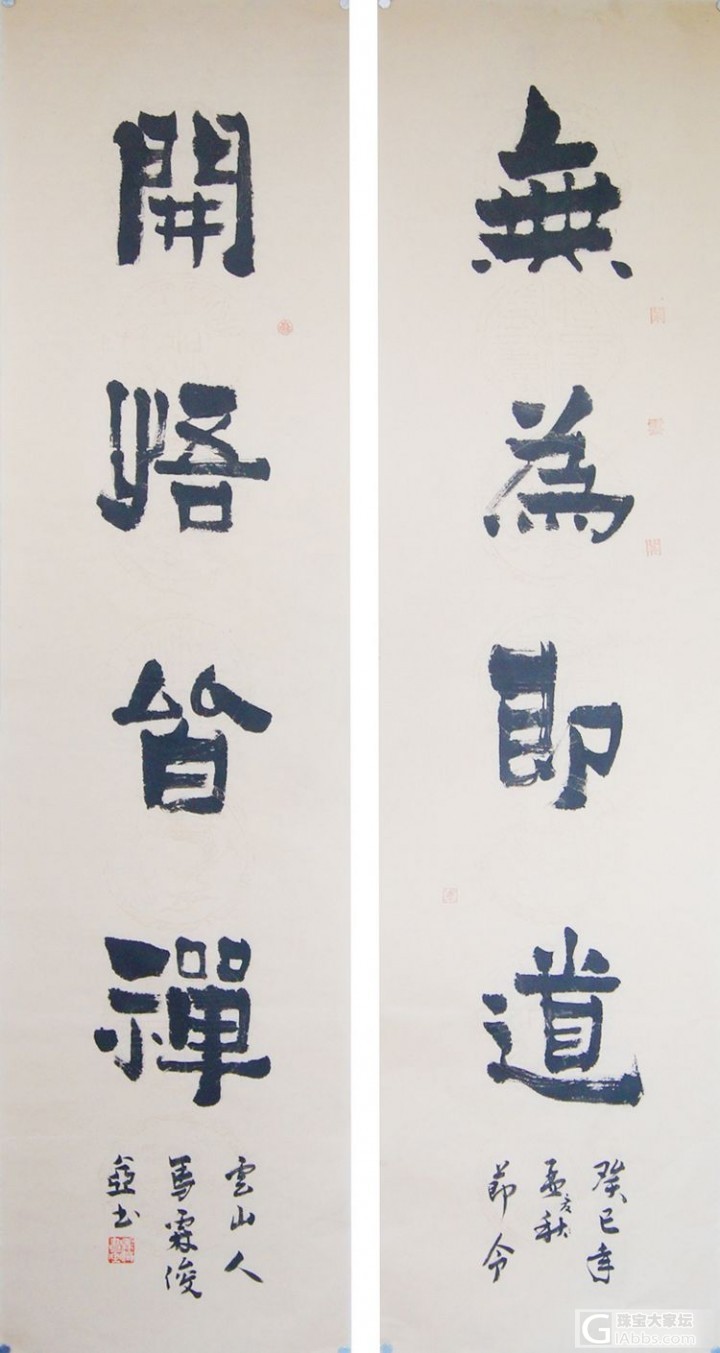 無為即道
癸巳年
孟秋
節令
開悟皆禪
雲山人
馬霖俊
書
珠宝大家坛
iAbbs.com